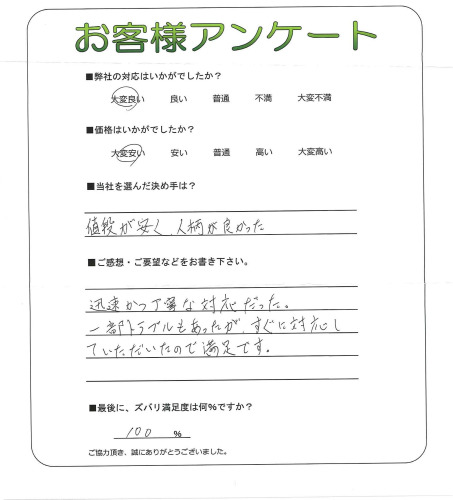 お客様アンケート
■弊社の対応はいかがでしたか？
大変良い 良い 普通 不満 大変不満
■価格はいかがでしたか？
大変安い 安い 普通 高い 大変高い
■当社を選んだ決め手は？
値段が安く、人柄が良かった
■ご感想・ご要望などをお書き下さい。
迅速かつ丁寧な対応だった。
一部トラブルもあったが、すぐに対応し
ていただいたので満足です。
■最後に、ズバリ満足度は何%ですか？
100 %
ご協力頂き、誠にありがとうございました。